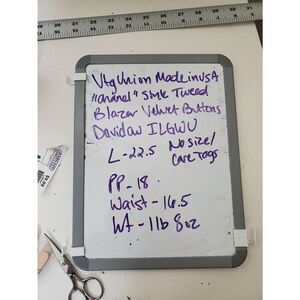 Vtg Union Made in USA
"Chanel" Style Tweed
Blazer Velvet Buttons
Davidow ILGWU
L - 22.5 No Size/
Care Tags
PP - 18
Waist - 16.5
Wt - 1lb 8oz